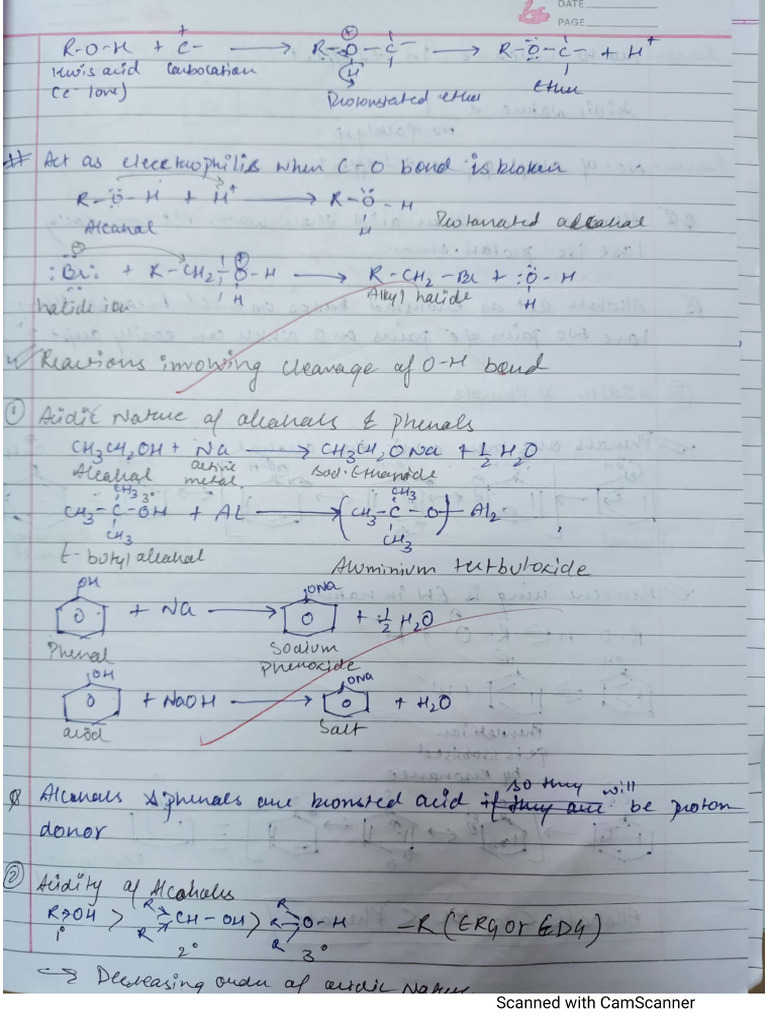 DATE
PAGE
R-O-H + C⁺- → R-O-C- → R-Ö-C- + H⁺
Carbocation
H
Ether
Protonstated ether
# Act as electrophilis when C-O bond is broken
R-Ö-H + H⁺ → R-Ö-H
H
Alcahal Protanated alcahal
:Br: + R-CH₂-O-H → R-CH₂-Br + :Ö-H
H H
halide ion Alkyl halide
Reactions involving cleavage of O-H bond
① Acidic Nature of alcahals & phenals
CH₃CH₂OH + Na → CH₃CH₂ONa + ½ H₂O
Alcahal active metal Sod. Ethanoide
CH₃ 3° CH₃
CH₃-C-OH + AL → (CH₃-C-O)-Al₂
CH₃ CH₃
t-butyl alcahal Aluminium turtbutoxide
OH ONa
+ Na → + ½ H₂O
Phenal Sodium phenoxide
OH ONa
+ NaOH → + H₂O
acid Salt
so they will
Alcahals & phenals are bronsted acid if they are be proton
donor
② Acidity of Alcahals
R>OH > R R CH-OH > R R R O-H -R (ERG or EDG)
1° 2° 3°
→ Decreasing order of acidic Nature